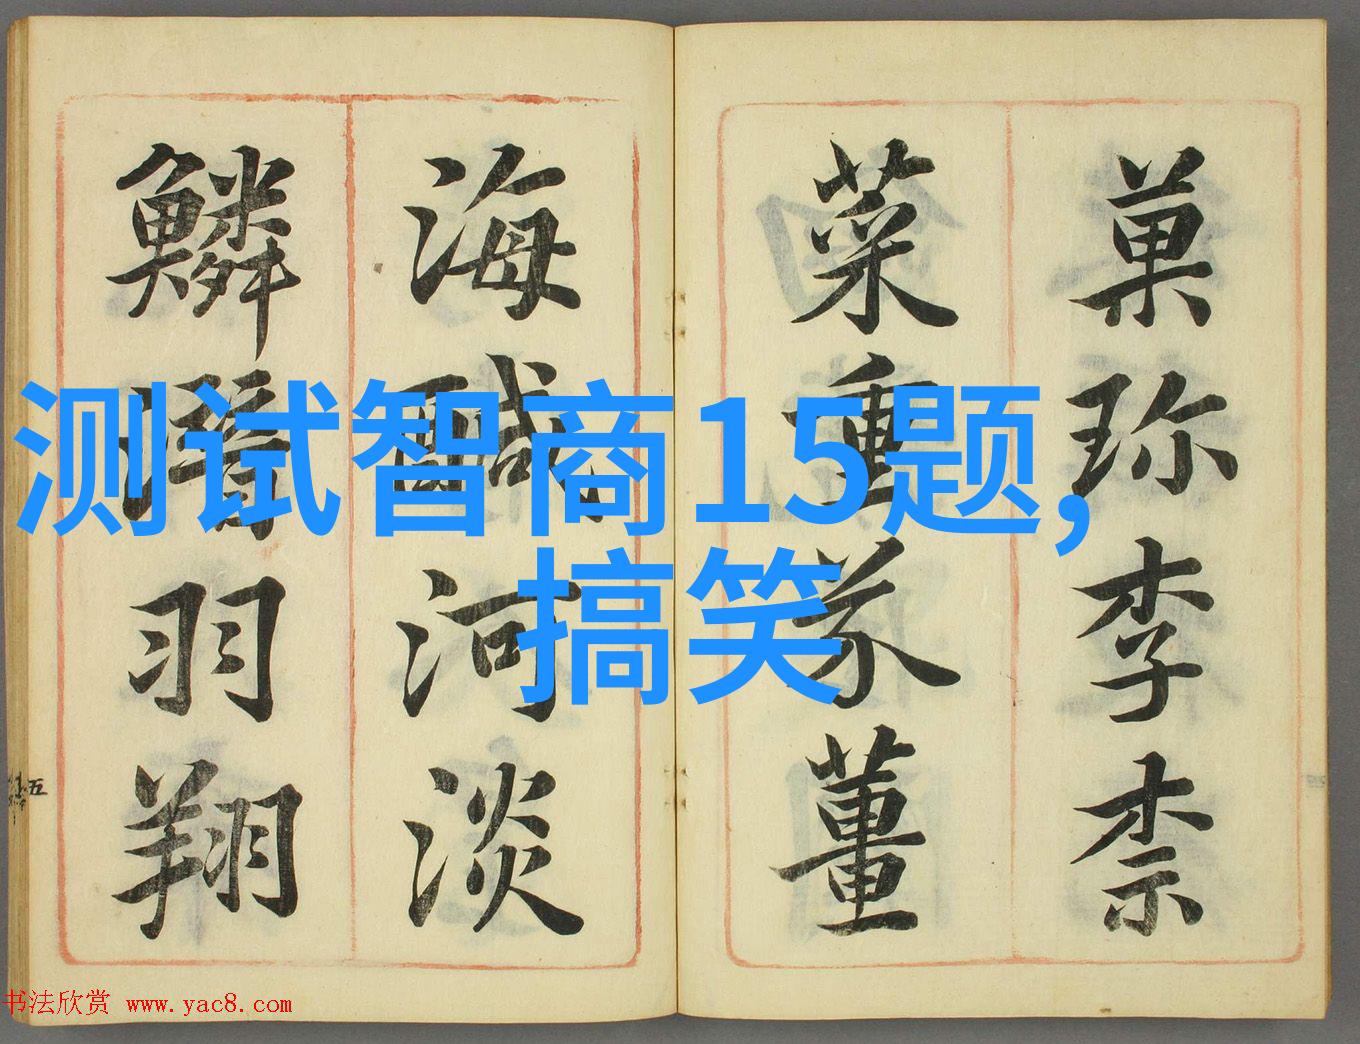 菓珎李柰
菜重芥薑
海醎河淡
鱗潛羽翔
五
测试智商15题,
搞笑
书法欣赏 www.yac8.com